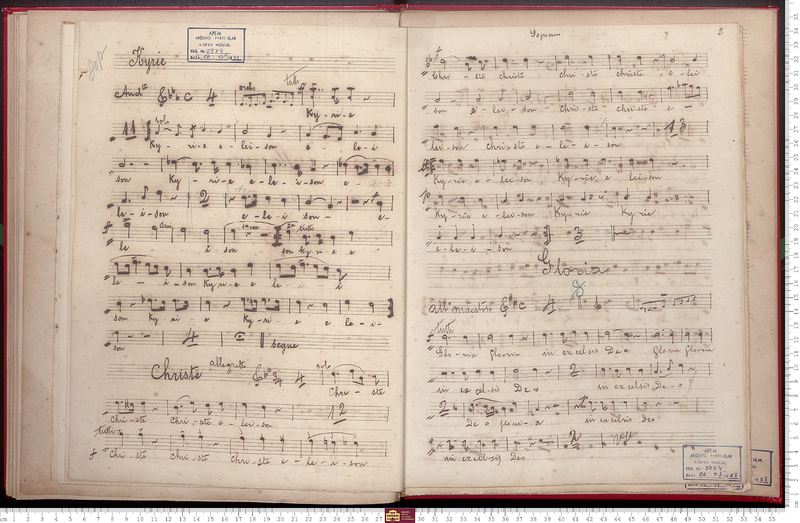 Kyrie
APEM
ARQUIVO PARTICULAR
ACERVO MUSICAL
REG. No 0774
And.te C 4 tutti
Ky - ri - e
11 solo
Ky - ri - e e - lei - son e - le - i
son Ky - ri - e e - le - i - son e
2
le - i - son e - le - i son - e-
le i son Ky - ri - e e
le - i - son Ky - ri - e e le i
son Ky - ri - e Ky - ri - e e le - i-
4 segue
son
Christe allegretto 3/4 4 solo
Chri - ste
12
Chri - ste Chri - ste e - lei - son
tutti
Chri - ste Chri - ste Chri - ste e - le - i - son
Soprano 2
Chri - ste christe chri - ste christe e - lei
son e - lei - son Chri - ste christe e -
13
lei - son chri - ste e - le - i - son
Ky - rie e - lei - son Ky - rie e lei - son
Ky - rie e - lei - son Ky - rie Ky - rie
3
e - le - i - son
Gloria
all.o maestoso C 4
tutti
Glo - ria gloria in excelsis Deo gloria gloria
2
in excelsis Deo in excelsis Deo
2
Deo gloria in excelsis Deo
2
in excelsis Deo
APEM
ARQUIVO PARTICULAR
ACERVO MUSICAL
REG. No 0774